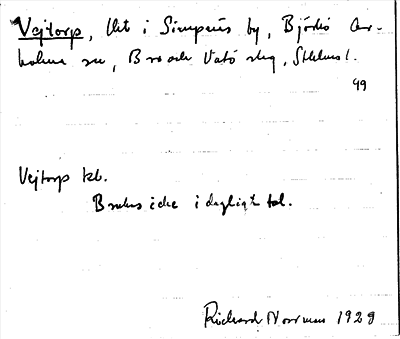 Vejtorp, Utt i Simpnäs by, Björkö Ar-
holma sn, Bro och Vätö slg, Sthlms l.
49
Vejtorp tkl.
Brukas icke i dagligt tal.
Richard Norrman 1929